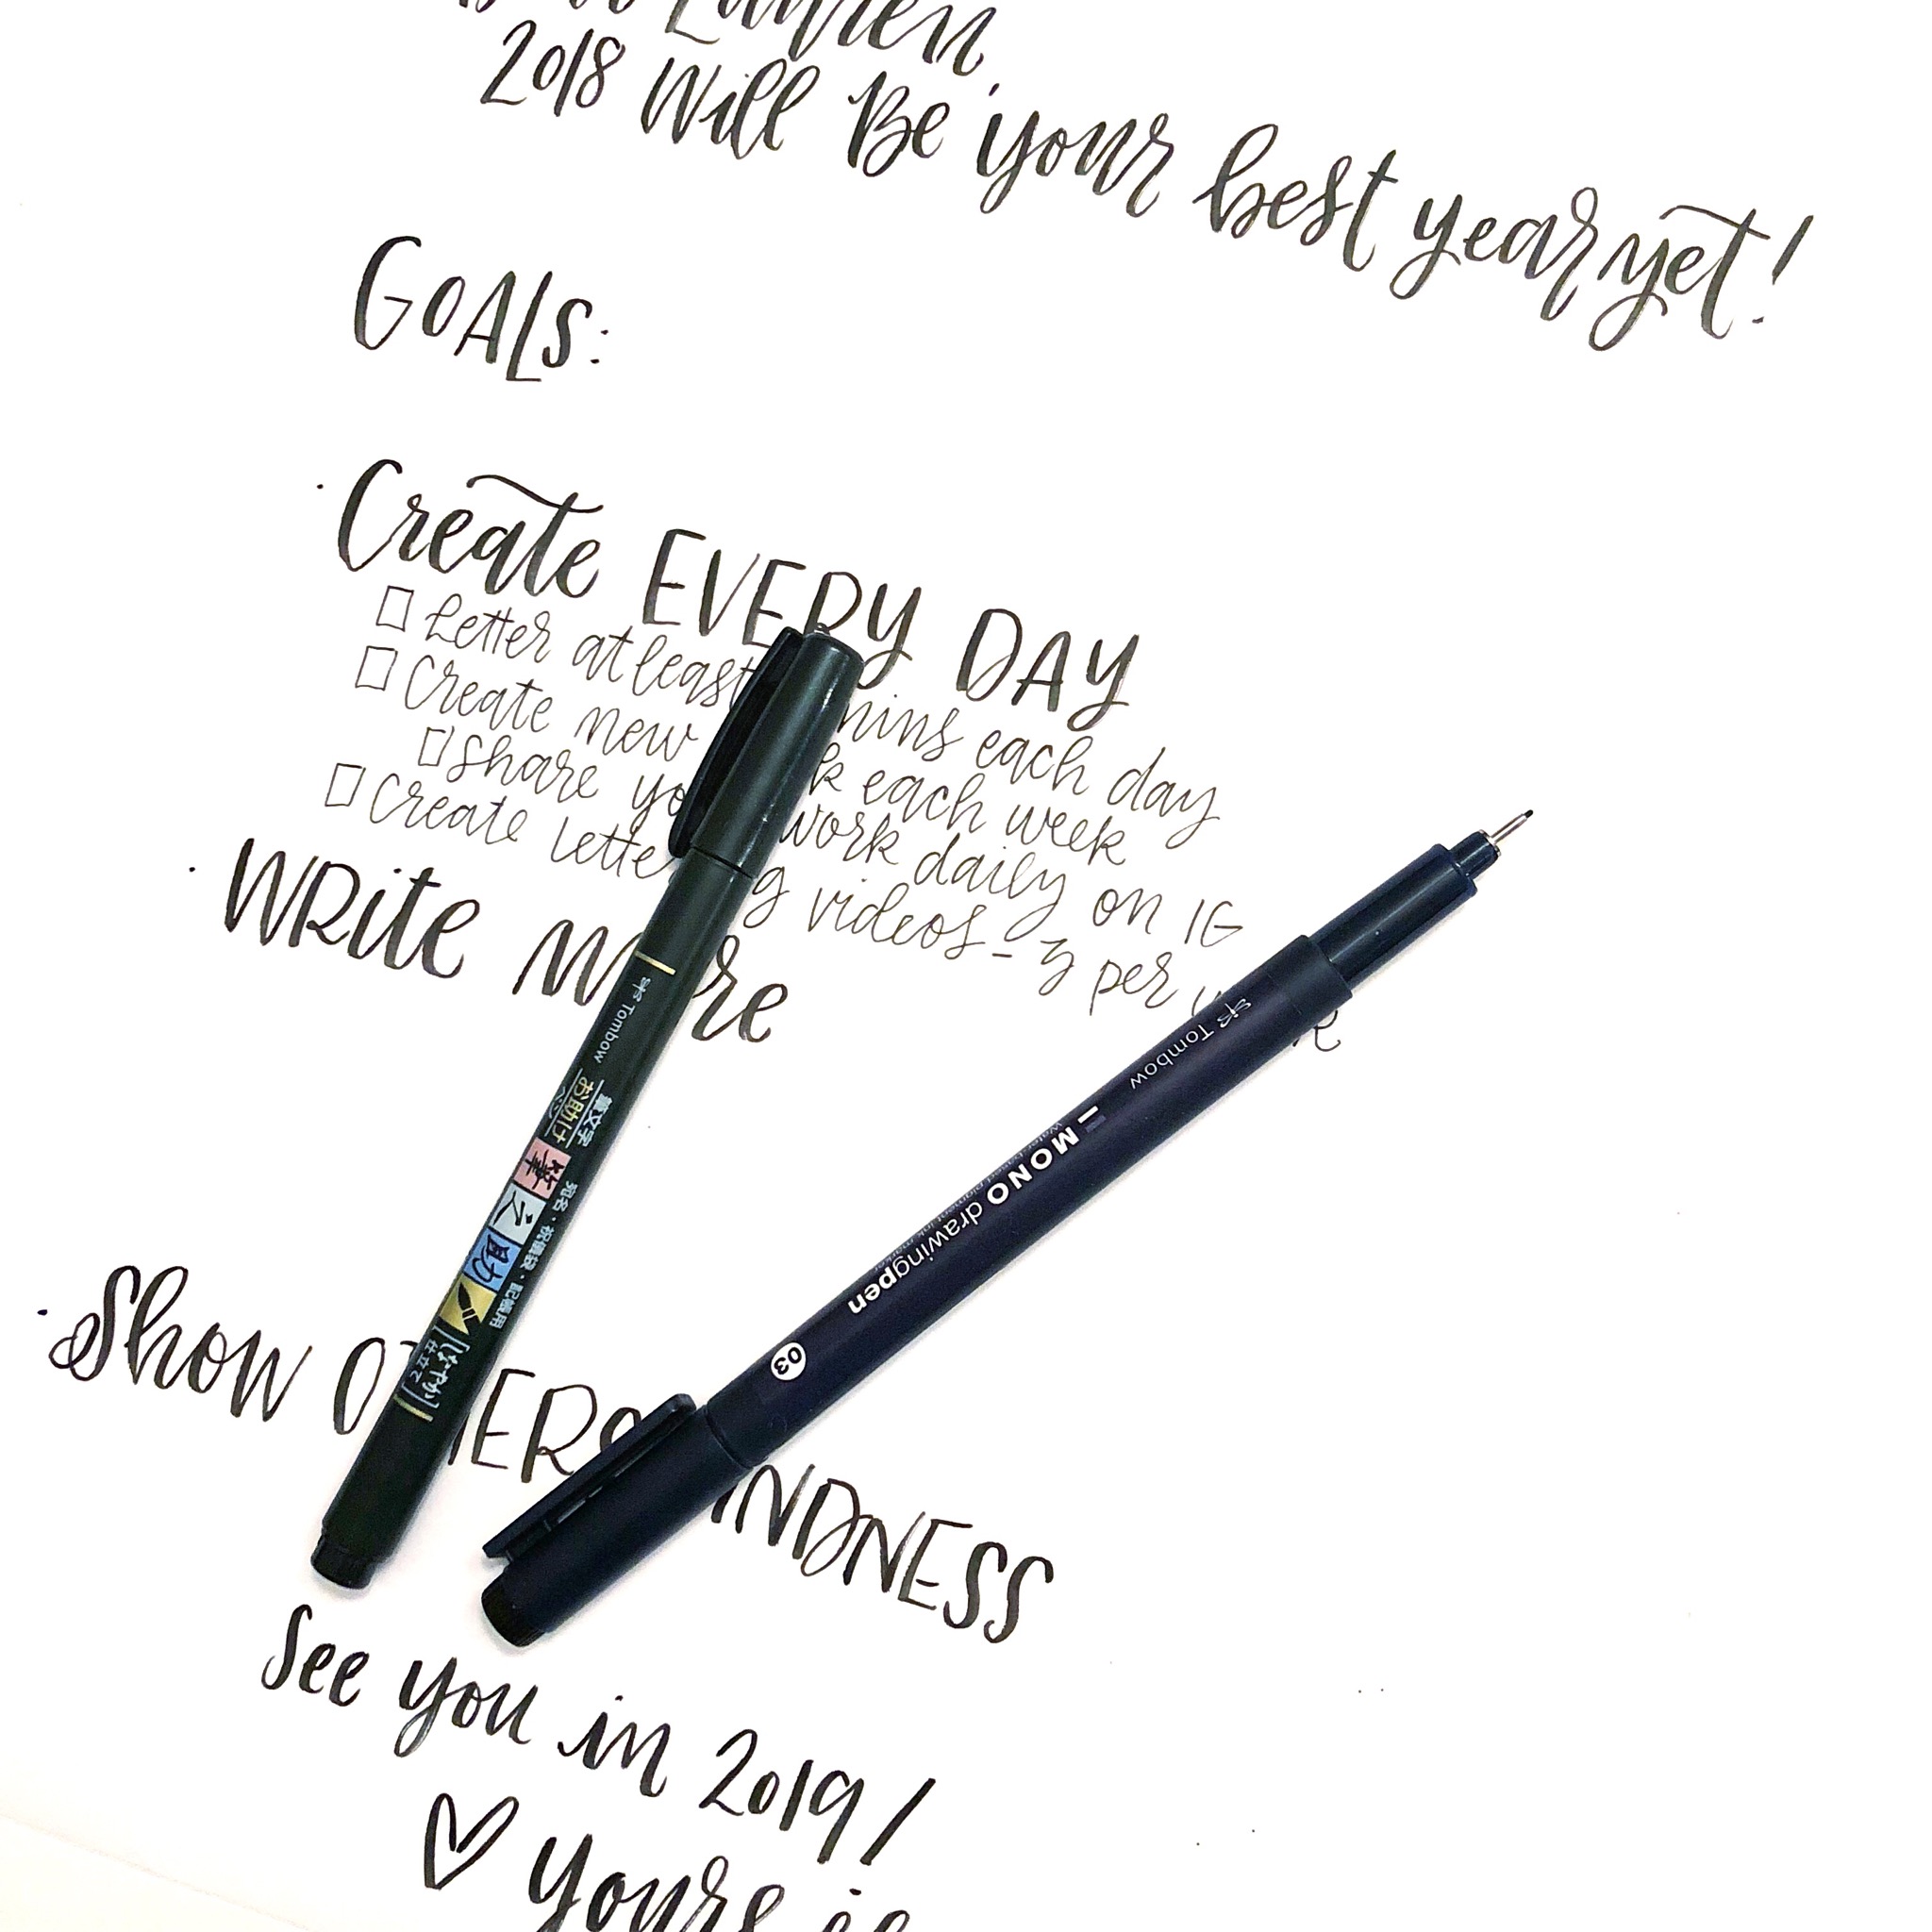 Lauren,
2018 Will Be your best year yet!
GOALS:
· Create EVERY DAY
☐ Letter at least mins each day
☐ Create new each week
☐ Share work daily on IG
☐ Create videos - 3 per
· WRite more
· Show OTHERS KINDNESS
See you in 2019!
♡ yours
Tombow
筆文字
お助け
ペン
宛名・祝儀袋・記帳用
筆之助
[しなやか]
仕立て
Tombow
MONO drawingpen
Water based pigment ink marker
03